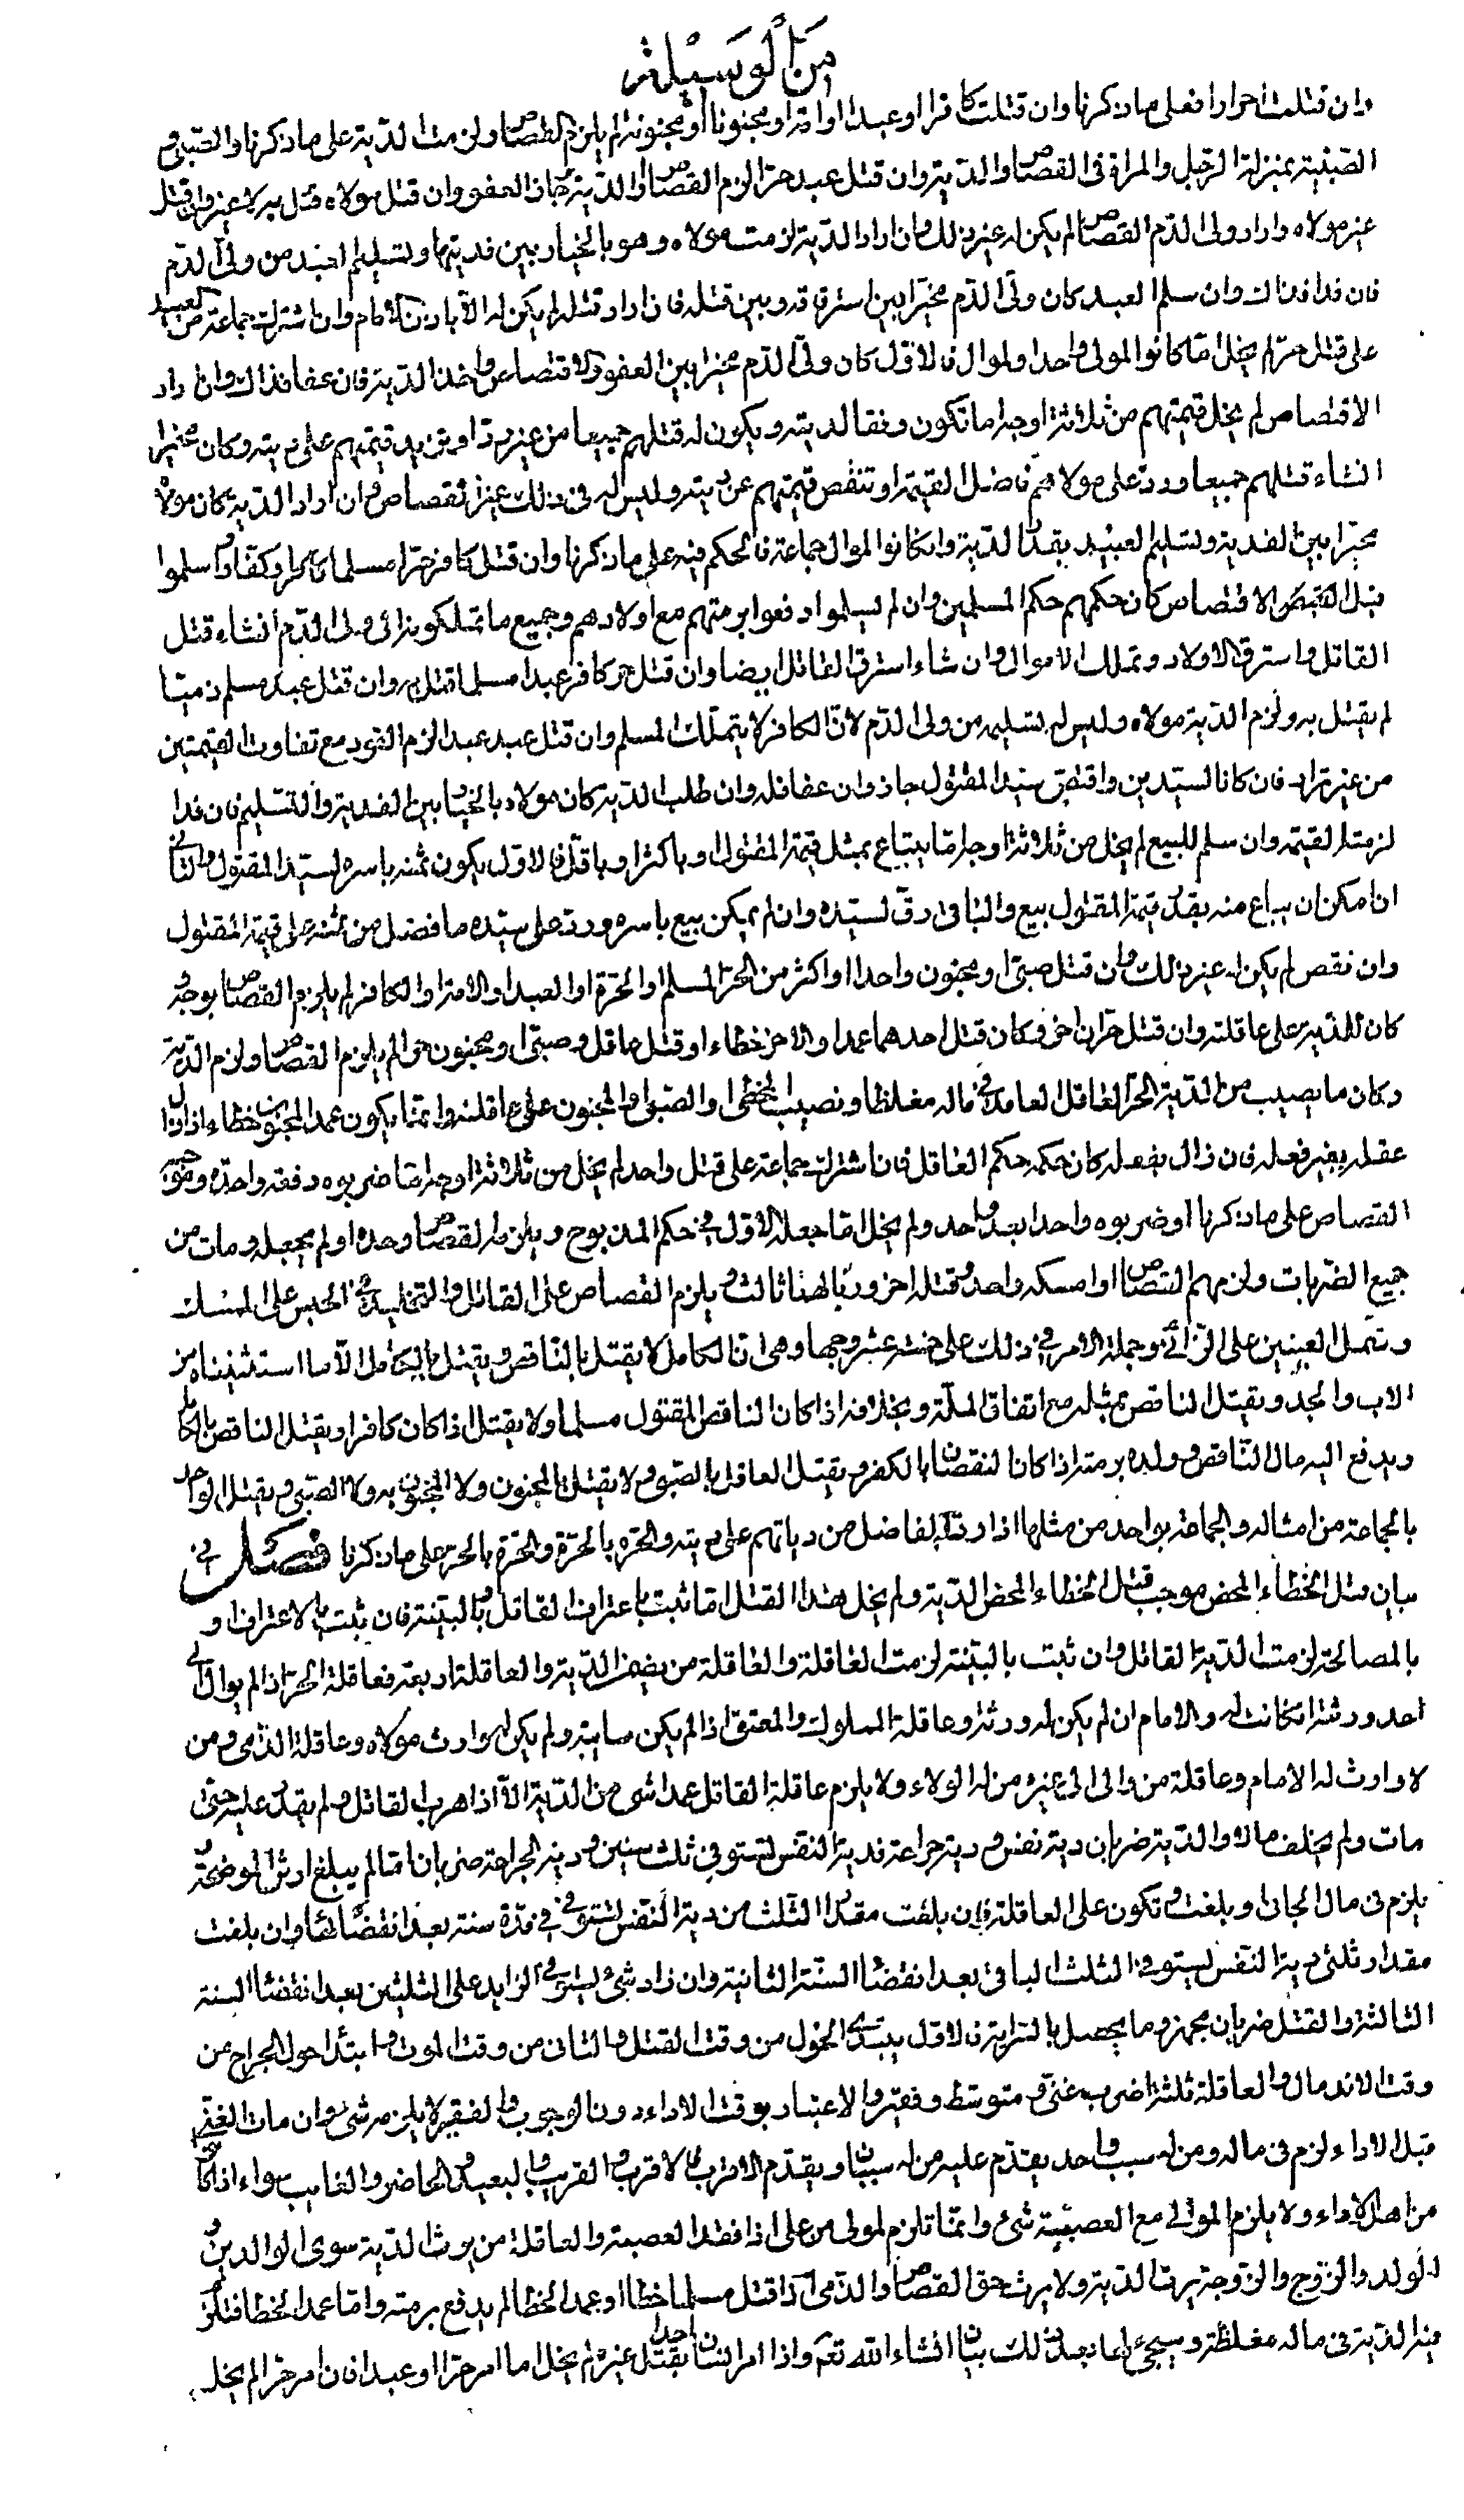 من الوسيلة
وان قتلت احرارا فعلى ما ذكرنا وان قتلت كافرا او عبدا او امة او مجنونا او مجنونة لم يلزم القصاص ولزمت الدية على ما ذكرنا والصبي و
الصبية بمنزلة الرجل والمراة فى القصاص والدية وان قتل عبد حرا لزم القصاص او الدية جاز العفو وان قتل مولاه قتل به لا غير وان قتل
غير مولاه واراد ولى الدم القصاص لم يكن له غير ذلك وان اراد الدية لزمت مولاه وهو بالخيار بين فديته او تسليم العبد من ولى الدم
فان فدا فذاك وان سلم العبد كان ولى الدم مخيرا بين استرقاقه وبين قتله فان اراد قتله لم يكن له الا باذن الامام وان اشتركت جماعة من العبيد
على قتل حر لم يخل اما كانوا لمولى واحد او لموال فالاول كان ولى الدم مخيرا بين العفو والاقتصاص واخذ الدية فان عفا فذاك وان اراد
الاقتصاص لم يخل قيمتهم من ثلاثة اوجه اما تكون وفقا لديته ويكون له قتلهم جميعا من غير رد او تزيد قيمتهم على ديته وكان مخيرا
ان شاء قتلهم جميعا ورد على مولاهم فاضل القيمة او تنقص قيمتهم عن ديته وليس له فى ذلك غير القصاص وان اراد الدية كان مولاه
مخيرا بين الفدية وتسليم العبيد بقدر الدية وان كانوا لموال جماعة فالحكم فيه على ما ذكرنا وان قتل كافر حرا مسلما او كفار واسلموا
قبل الاقتصاص كان حكمهم حكم المسلمين وان لم يسلموا دفعوا برمتهم مع اولادهم وجميع ما تملكونه الى ولى الدم ان شاء قتل
القاتل واسترق الاولاد وتملك الاموال وان شاء استرق القاتل ايضا وان قتل حر كافر عبدا مسلما قتل به وان قتل عبد مسلم ذميا
لم يقتل به ولزم الدية مولاه وليس له تسليمه من ولى الدم لان الكافر لا يتملك المسلم وان قتل عبد عبدا لزم القود مع تفاوت القيمتين
من غير تراد فان كانا لسيدين واقتص سيد المقتول جاز وان عفا فله وان طلب الدية كان مولاه بالخيار بين الفدية والتسليم فان فدا
لزمته القيمة وان سلم للبيع لم يخل من ثلاثة اوجه اما يبتاع بمثل قيمة المقتول او باكثر او باقل فالاول يكون ثمنه باسره لسيد المقتول والثانى
ان امكن ان يباع منه بقدر قيمة المقتول بيع والباقى رق لسيده وان لم يمكن بيع باسره ورد على سيده ما فضل من ثمنه على قيمة المقتول
وان نقص لم يكن له غير ذلك وان قتل صبى او مجنون واحدا او اكثر من الحر المسلم او الحرة او العبد او الامة او الكافر لم يلزم القصاص بوجه و
كان الدية على عاقلته وان قتل حران اخر وكان قتل احدهما عمدا والاخر خطاء او قتل عاقل وصبى او مجنون حرا لم يلزم القصاص ولزم الدية
وكان ما يصيب من الدية الحر العاقل العامد فى ماله مغلظا ونصيب المخطى والصبى والمجنون على عاقلته وانما يكون عمد المجنون خطاء اذا زال
عقله بغير فعله فان زال بفعله كان حكمه حكم العاقل فان اشتركت جماعة على قتل واحد لم يخل من ثلاثة اوجه اما ضربوه دفعة واحدة وحكم
القصاص على ما ذكرنا او ضربوه واحدا بعد واحد ولم يخل اما جعله الاول فى حكم المذبوح ويلزمه القصاص وحده او لم يجعله ومات من
جميع الضربات ولزمهم القصاص او امسكه واحد وقتله اخر وربا لهذا ثالث ويلزم القصاص على القاتل والتخليد فى الحبس على الممسك
وتسمل العينين على الرائى وجملة الامر فى ذلك على خمسة عشر وجها وهى ان الكامل لا يقتل بالناقص ويقتل بالكامل الا ما استثنيناه من
الاب والجد ويقتل الناقص بمثله مع اتفاق الملة وبخلافه اذا كان الناقص المقتول مسلما ولا يقتل اذا كان كافرا ويقتل الناقص بالكامل
ويدفع اليه مال الناقص وولده برمته اذا كان النقصان بالكفر ويقتل العاقل بالصبى ولا يقتل بالمجنون ولا المجنون به ولا الصبى ويقتل الواحد
بالجماعة من امثاله والجماعة بواحد من مثلها اذا رد الفاضل من دياتهم على ديته والحرة بالحرة والحرة بالحر على ما ذكرنا فصل فى
بيان قتل الخطاء المحض موجب قتل الخطاء المحض الدية ولم يخل هذا القتل اما ثبت باعتراف القاتل او بالبينة فان ثبت بالاعتراف او
بالمصالحة لزمت الدية القاتل وان ثبت بالبينة لزمت العاقلة والعاقلة من يضمن الدية والعاقلة اربعة فعاقلة الحر اذا لم يوال الى
احد ورثته ان كانت له والامام ان لم يكن له ورثة وعاقلة المملوك والمعتق اذا لم يكن سايبة ولم يكن له وارث مولاه وعاقلة الذمى ومن
لا وارث له الامام وعاقلة من والى الى غيره من له الولاء ولا يلزم عاقلة القاتل عمدا شئ من الدية الا اذا هرب القاتل ولم يقدر عليه حتى
مات ولم يخلف مالا والدية ضربان دية نفس ودية جراحة فدية النفس تستوفى ثلث سنين ودية الجراحة ضربان اما لم يبلغ ارش الموضحة و
يلزم فى مال الجانى او بلغت وتكون على العاقلة فان بلغت مقدار الثلث من دية النفس تستوفى فى مدة سنة بعد انقضائها وان بلغت
مقدار ثلثى دية النفس يستوفى الثلث الباقى بعد انقضاء السنة الثانية وان زاد شئ يستوفى الزايد على الثلثين بعد انقضاء السنة
الثالثة والقتل ضربان مجهز وما يحصل بالسراية فالاول يبتدئ الحول من وقت القتل والثانى من وقت الموت وابتداء حول الجراح من
وقت الاندمال والعاقلة ثلثة اضرب غنى ومتوسط وفقير والاعتبار بوقت الاداء دون الوجوب والفقير لا يلزمه شئ وان مات الغنى
قبل الاداء لزم فى ماله ومن له سبب واحد يقدم عليه من له سببان ويقدم الاقرب فالاقرب والقريب والبعيد والحاضر والغايب سواء اذا كانوا
من اهل الاداء ولا يلزم الموالى مع العصبية شئ وانما تلزم المولى من على اذا فقد العصبة والعاقلة من يرث الدية سوى الوالدين و
الولد والزوج والزوجة يرث الدية ولا يرث حق القصاص والذمى اذا قتل مسلما خطا او عمد الخطا لم يدفع برمته واما عمد الخطا فتلزم
فيه الدية فى ماله مغلظة وسيجئ بعد ذلك بيانا انشاء الله تعم واذا امر انسان احدا بقتل غيره لم يخل اما امر حرا او عبدا فان امر حرا لم يخل